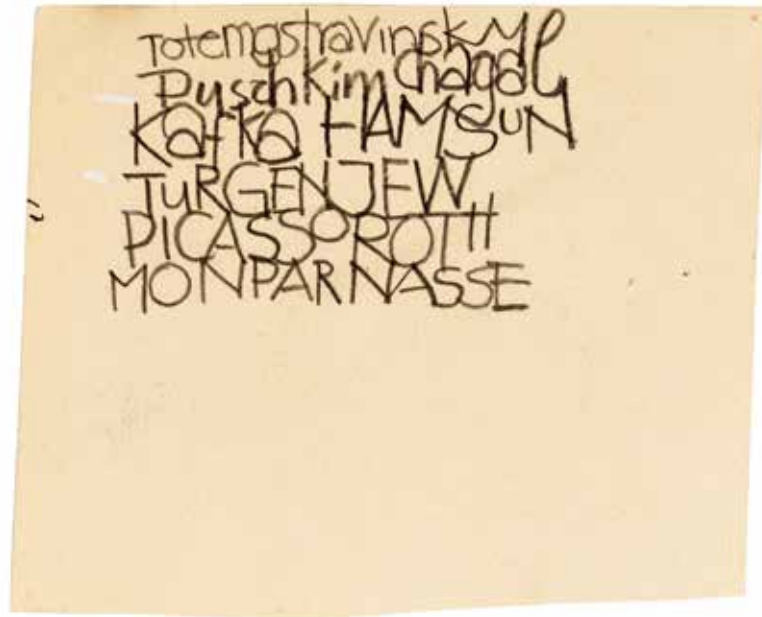 Totemgstravinsky
Puschkim Chagal
Kafka HAMSUN
TURGENJEW
PICASSO ROTH
MONPARNASSE